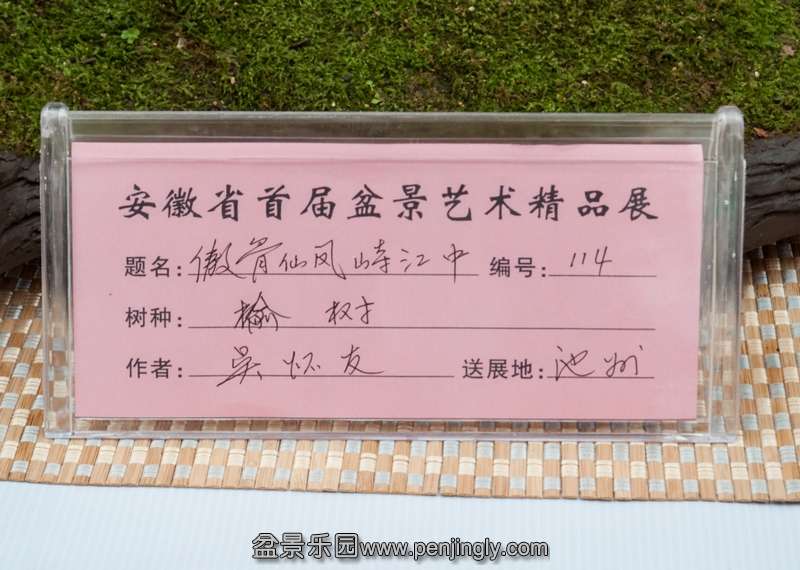 安徽省首届盆景艺术精品展
题名：傲骨仙风峙江中 编号：114
树种：榆树
作者：吴怀友 送展地：池州
盆景乐园www.penjingly.com